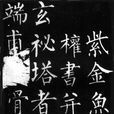 紫金魚
權書并
玄祕塔者
端甫骨